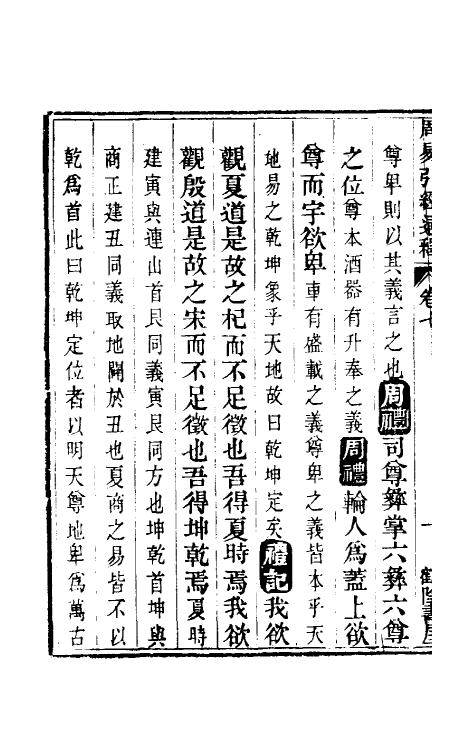 尊卑則以其義言之也周禮司尊彝掌六彝六尊
之位尊本酒器有升奉之義周禮輪人爲蓋上欲
尊而宇欲卑車有盛載之義尊卑之義皆本乎天
地易之乾坤象乎天地故曰乾坤定矣禮記我欲
觀夏道是故之杞而不足徵也吾得夏時焉我欲
觀殷道是故之宋而不足徵也吾得坤乾焉夏時
建寅與連山首艮同義寅艮同方也坤乾首坤與
商正建丑同義取地闢於丑也夏商之易皆不以
乾爲首此曰乾坤定位者以明天尊地卑爲萬古